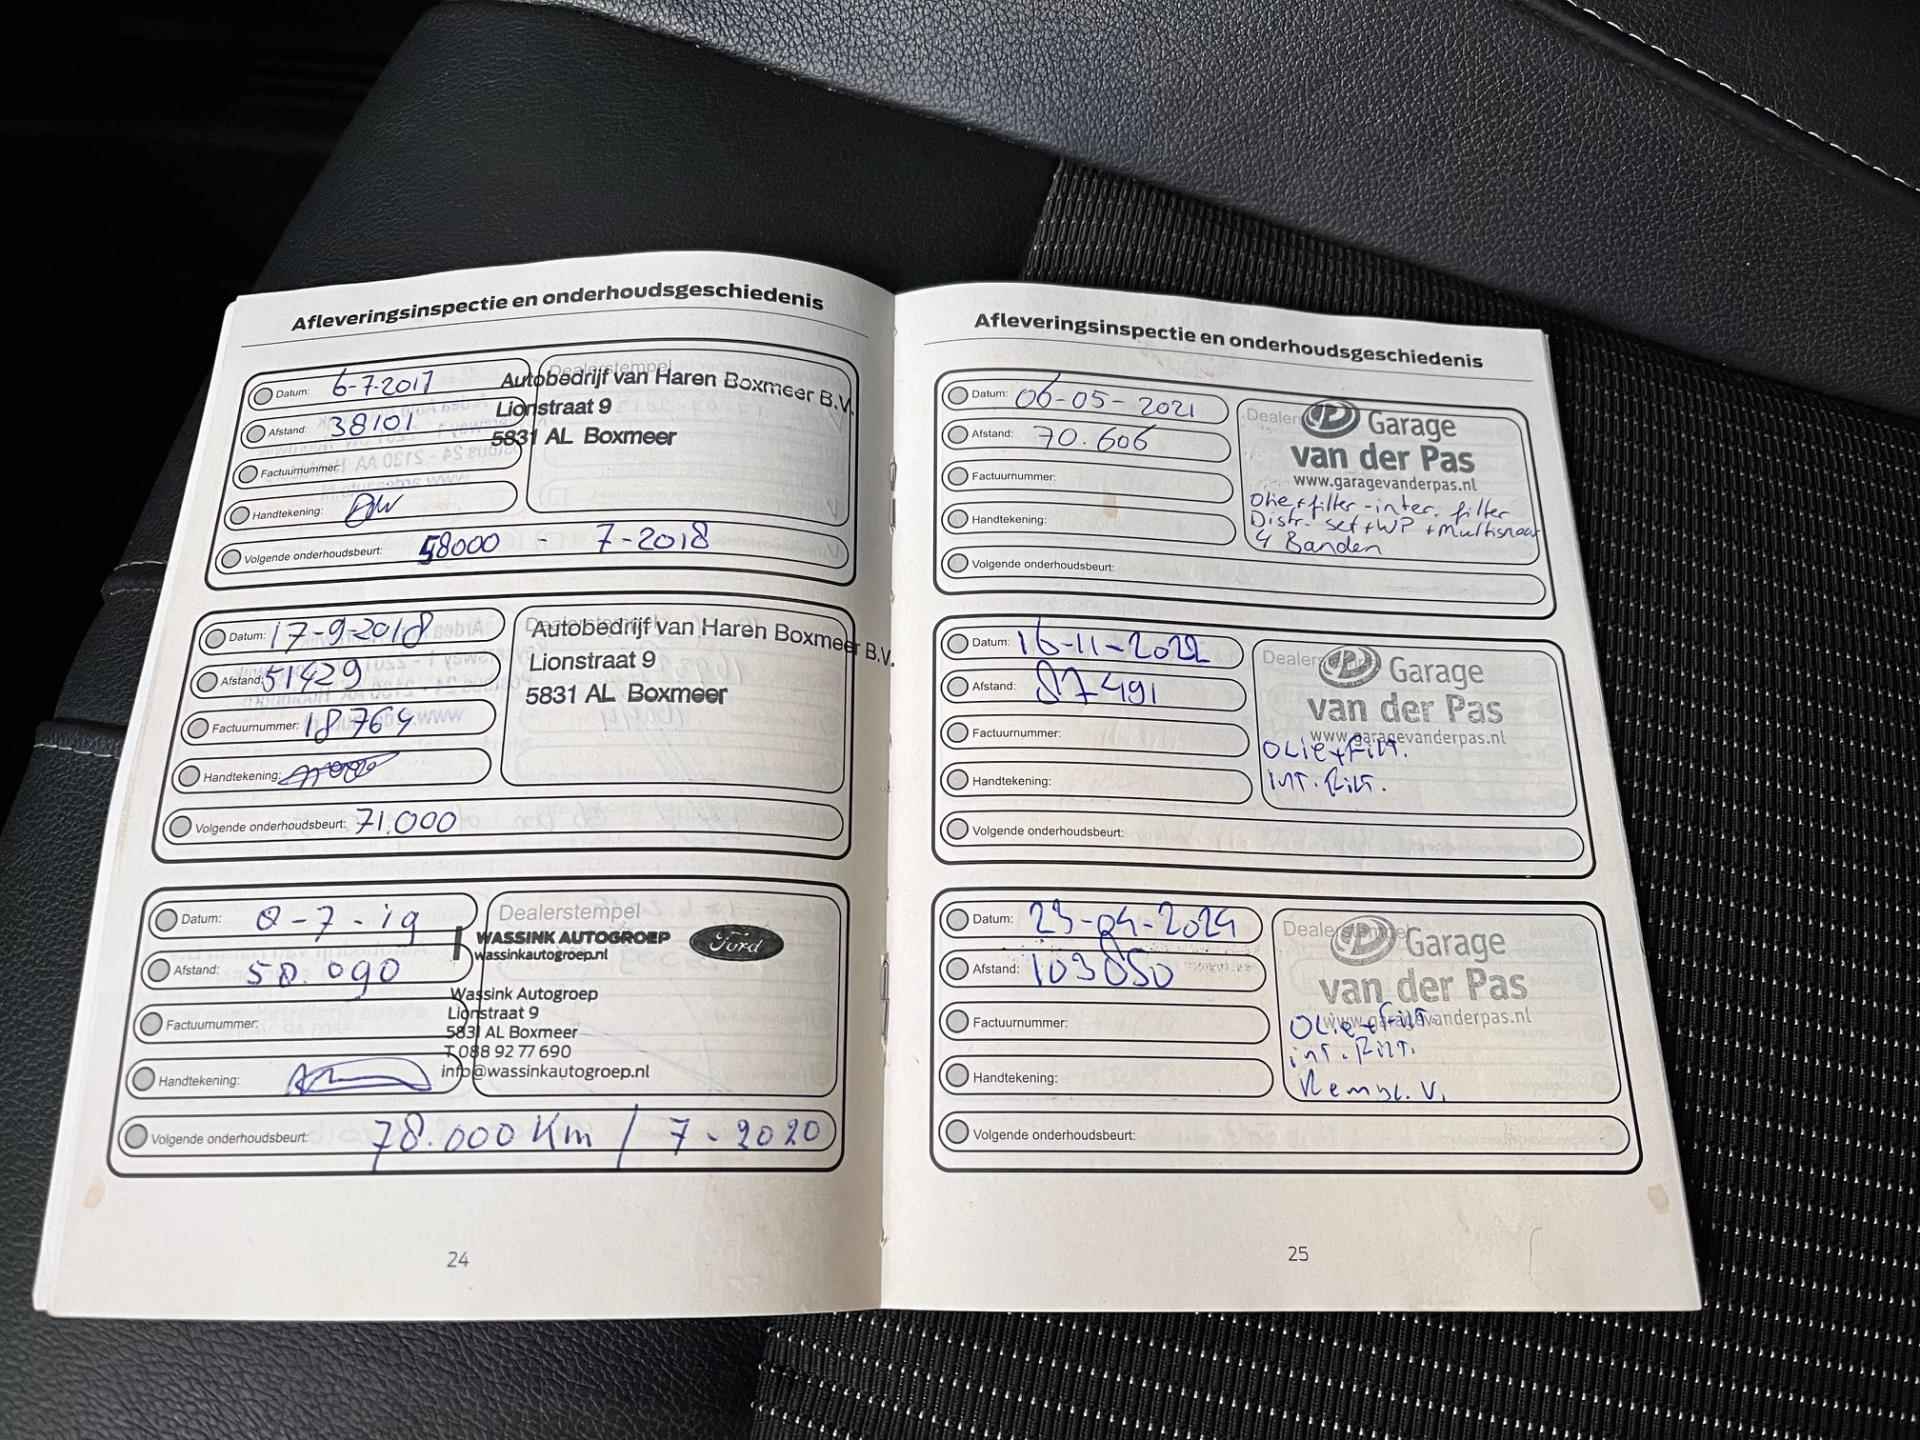 Afleveringsinspectie en onderhoudsgeschiedenis
Datum: 6-7-2017
Afstand: 38101
Factuurnummer:
Handtekening:
Volgende onderhoudsbeurt: 58000 - 7-2018
Dealerstempel
Autobedrijf van Haren Boxmeer B.V.
Lionstraat 9
5831 AL Boxmeer
Datum: 17-9-2018
Afstand: 51429
Factuurnummer: 18764
Handtekening:
Volgende onderhoudsbeurt: 71.000
Dealerstempel
Autobedrijf van Haren Boxmeer B.V.
Lionstraat 9
5831 AL Boxmeer
Datum: 8-7-19
Afstand: 58.090
Factuurnummer:
Handtekening:
Volgende onderhoudsbeurt: 78.000 Km / 7-2020
Dealerstempel
WASSINK AUTOGROEP
Ford
wassinkautogroep.nl
Wassink Autogroep
Lionstraat 9
5831 AL Boxmeer
T 088 92 77 690
info@wassinkautogroep.nl
24
Afleveringsinspectie en onderhoudsgeschiedenis
Datum: 06-05-2021
Afstand: 70.606
Factuurnummer:
Handtekening:
Volgende onderhoudsbeurt:
Garage
van der Pas
www.garagevanderpas.nl
Olie+filter-inter. filter
Distr. set+WP+Multisnaar
4 Banden
Datum: 16-11-2022
Afstand: 87491
Factuurnummer:
Handtekening:
Volgende onderhoudsbeurt:
Garage
van der Pas
www.garagevanderpas.nl
Olie+Filt.
Int. Filt.
Datum: 23-04-2024
Afstand: 103050
Factuurnummer:
Handtekening:
Volgende onderhoudsbeurt:
Garage
van der Pas
www.garagevanderpas.nl
Olie+Filt.
int. Filt.
Rembl. V.
25